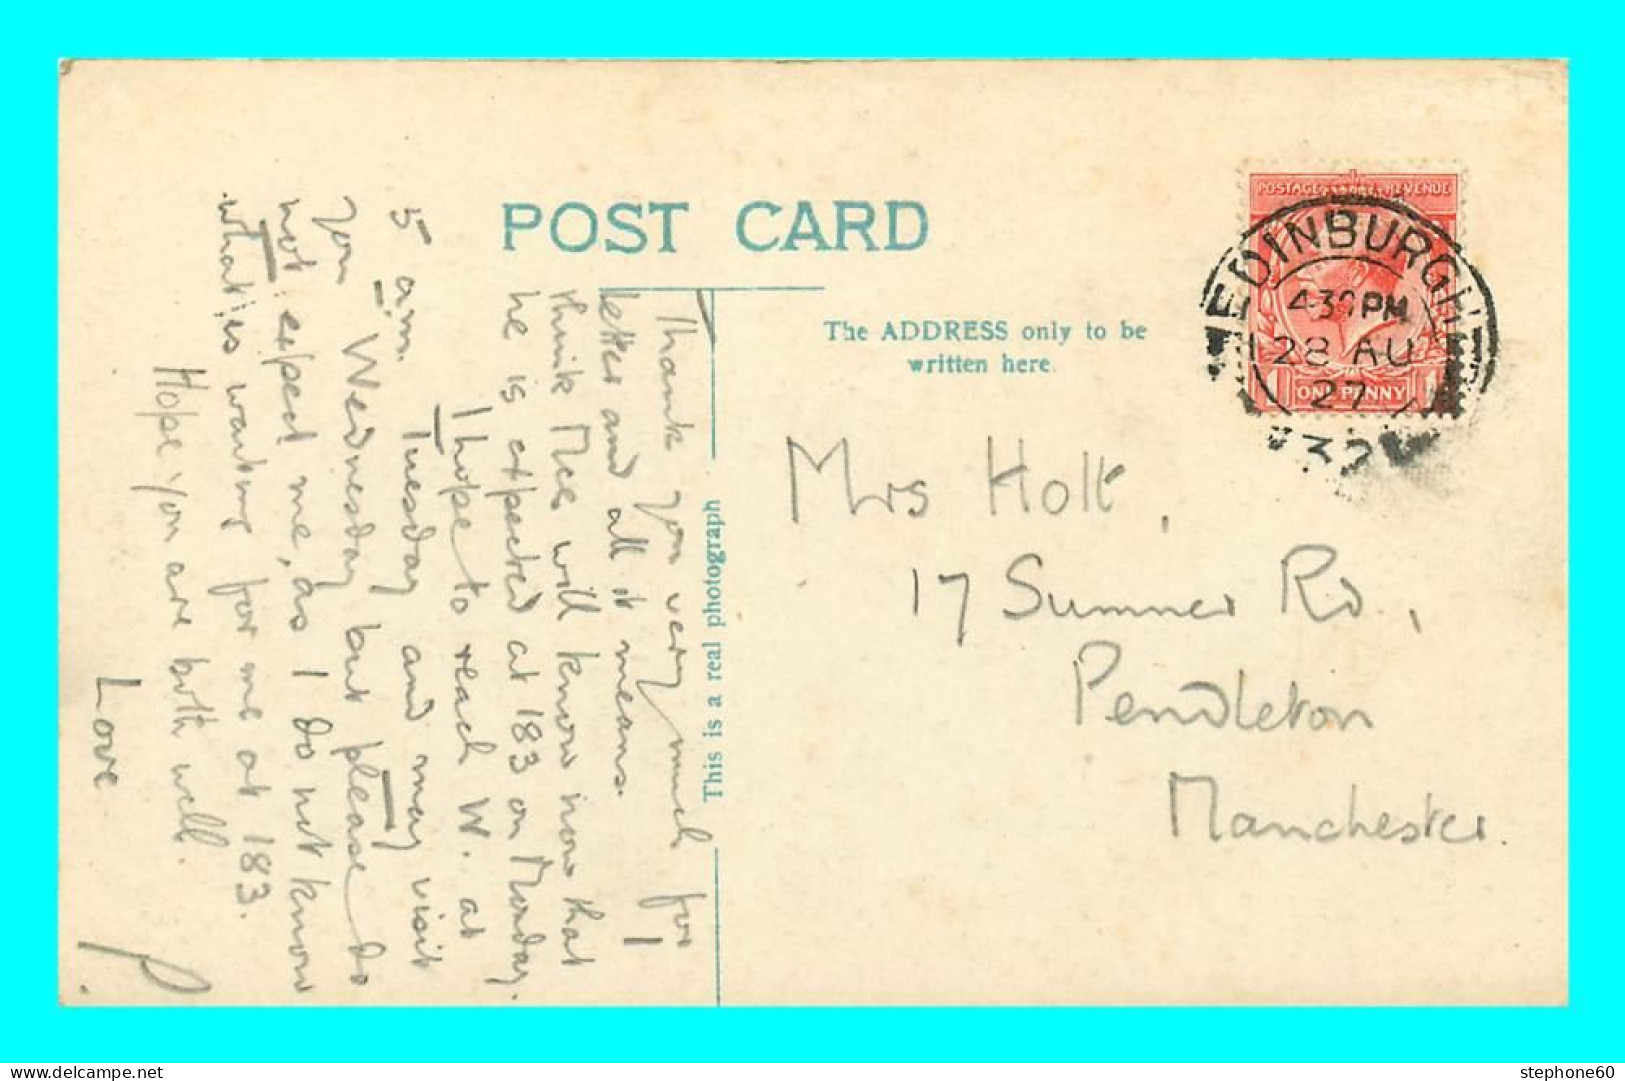 POST CARD
The ADDRESS only to be
written here.
This is a real photograph
POSTAGE REVENUE
ONE PENNY
EDINBURGH
4 30 PM
28 AU
27
32
Mrs Holt,
17 Summer Rd,
Pendleton
Manchester.
Thank you very much for
letter and all it means. I
think Mrs will know now that
he is expected at 183 on Monday.
I hope to reach W. at
5 am. Tuesday and may visit
you Wednesday but please do
not expect me, as I do not know
what is waiting for me at 183.
Hope you are both well.
Love
P.
stephone60